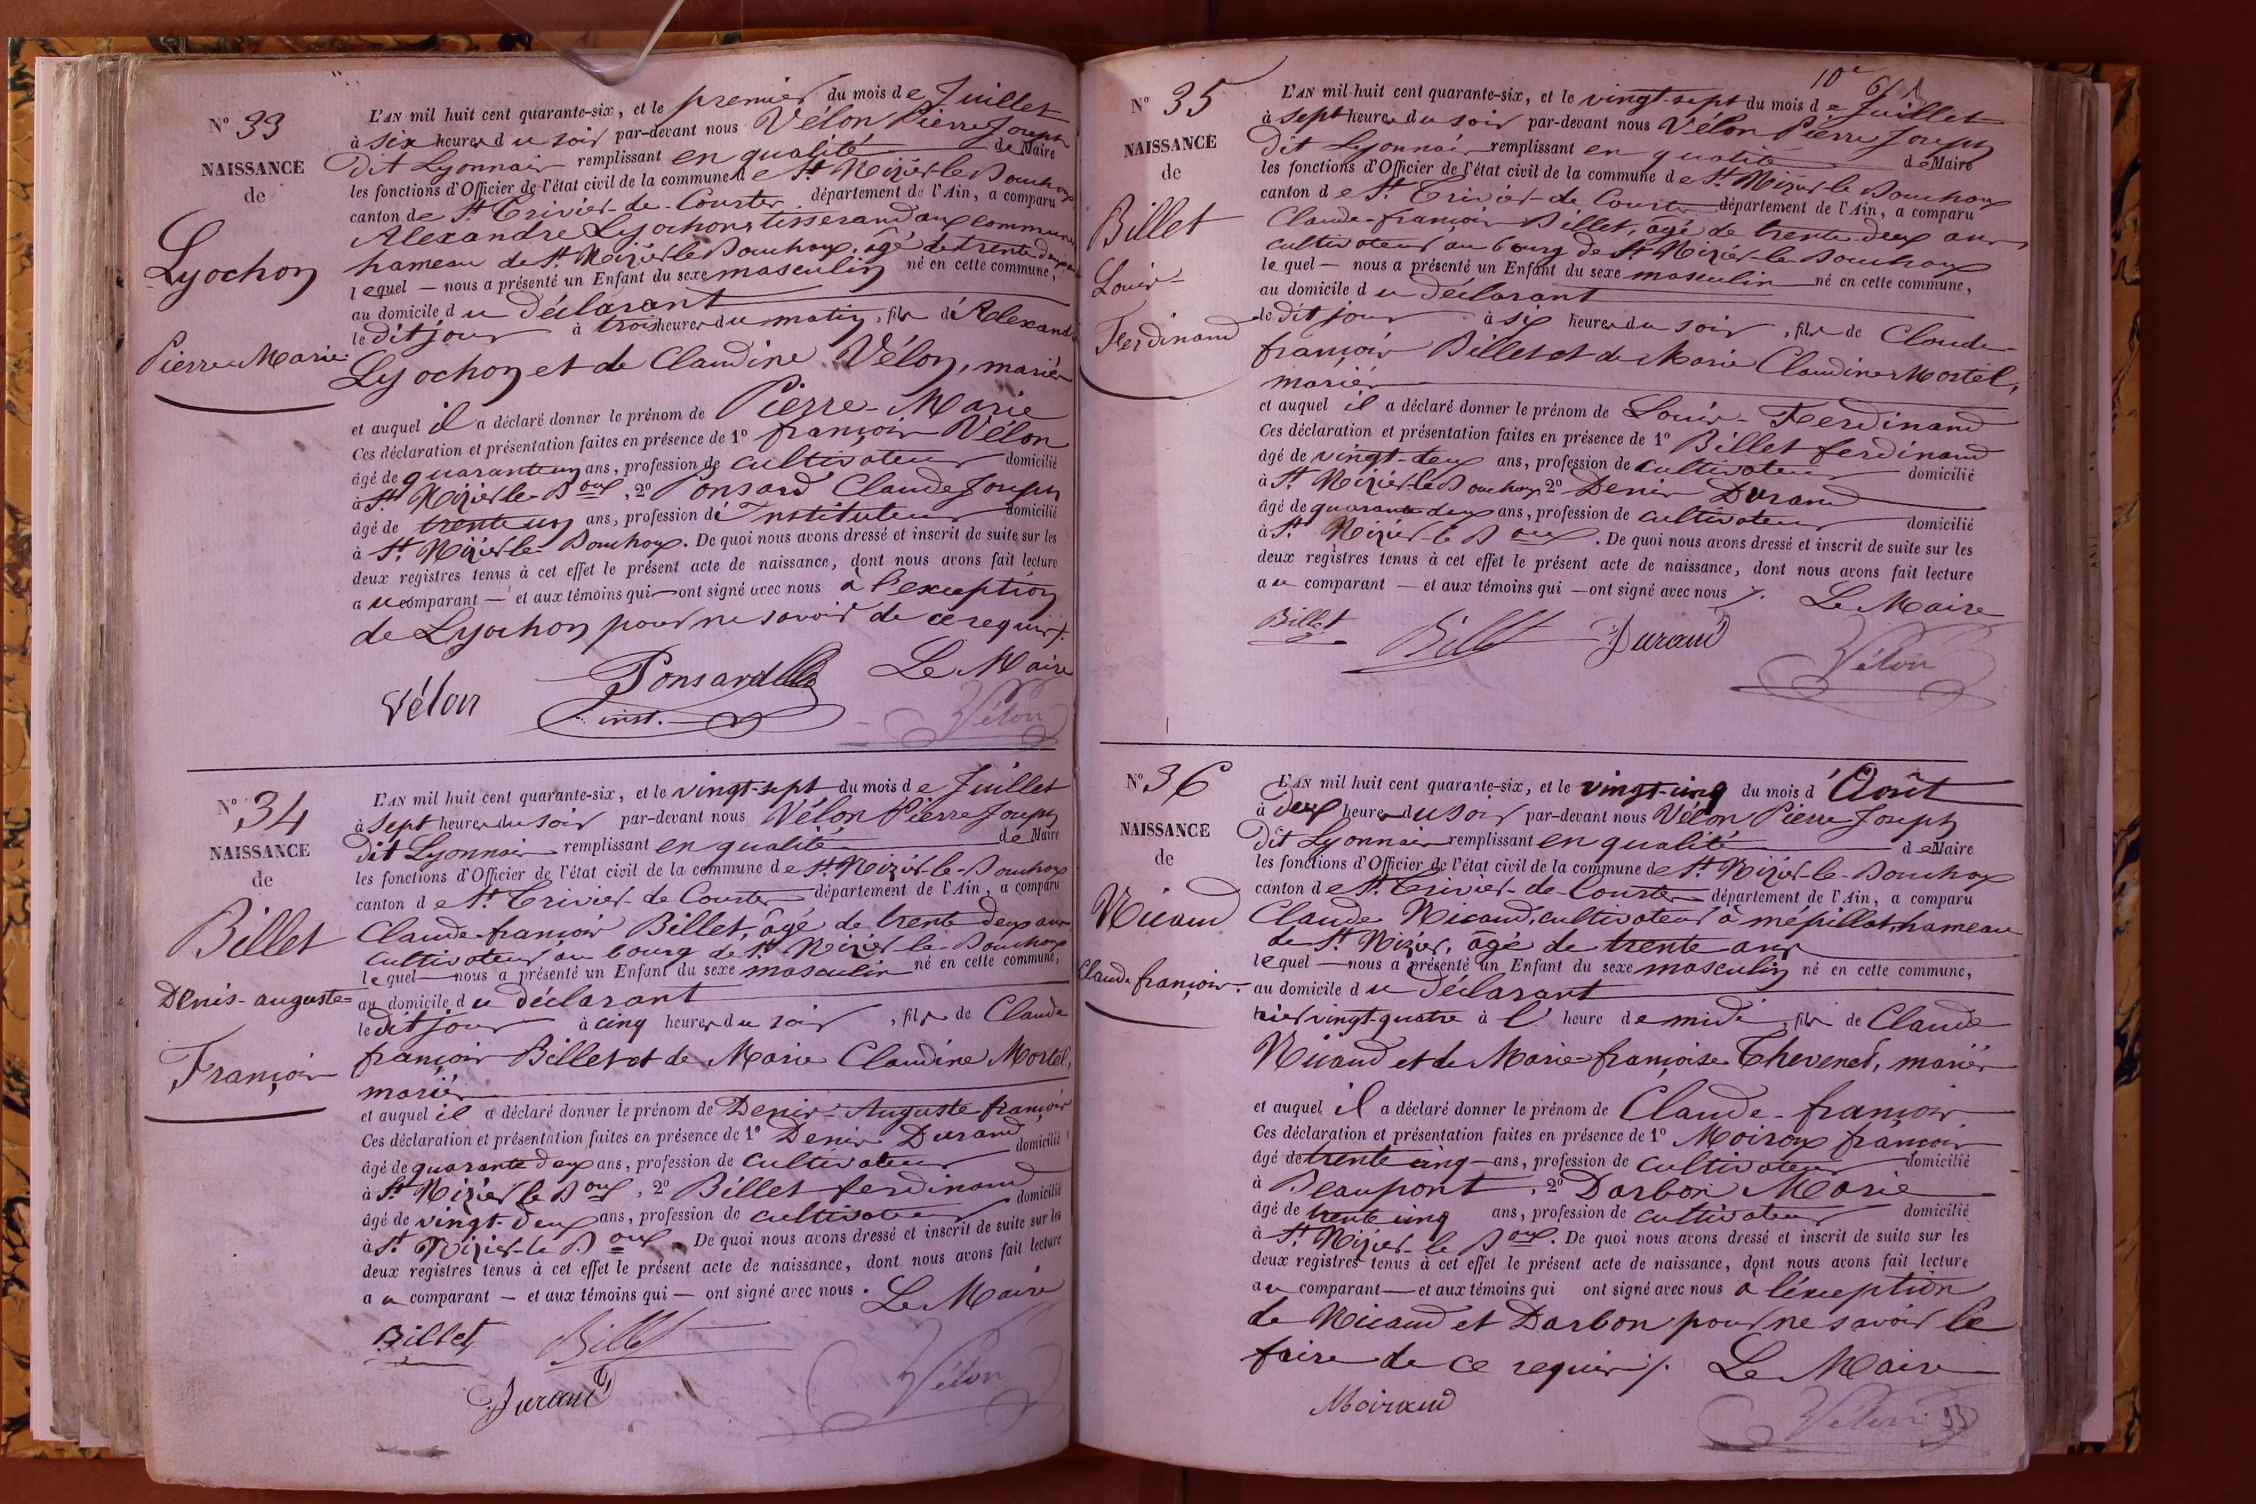 N° 33
NAISSANCE
de
Lyochon
Pierre Marie
L'AN mil huit cent quarante-six, et le premier du mois de Juillet
à six heures du soir par-devant nous Vélon Pierre Joseph
dit Lyonnais remplissant en qualité de Maire
les fonctions d'Officier de l'état civil de la commune de St Nizier-le-Bouchoux
canton de St Trivier-de-Courtes département de l'Ain, a comparu
Alexandre Lyochon, tisserand aux communes
hameau de St Nizier-le-Bouchoux, âgé de trente deux ans
lequel — nous a présenté un Enfant du sexe masculin né en cette commune,
au domicile du déclarant
le dit jour à trois heures du matin, fils d'Alexandre
Lyochon et de Claudine Vélon, mariés
et auquel il a déclaré donner le prénom de Pierre-Marie
Ces déclaration et présentation faites en présence de 1° françois Vélon
âgé de quarante un ans, profession de cultivateur domicilié
à St Nizier le Boux, 2° Ponsard Claude Joseph
âgé de trente un ans, profession d'Instituteur domicilié
à St Nizier-le-Bouchoux. De quoi nous avons dressé et inscrit de suite sur les
deux registres tenus à cet effet le présent acte de naissance, dont nous avons fait lecture
au comparant — et aux témoins qui — ont signé avec nous à l'exception
de Lyochon pour ne savoir de ce requis ./.
Le Maire
Vélon Ponsard
inst. Vélon
N° 34
NAISSANCE
de
Billet
Denis-auguste-
François
L'AN mil huit cent quarante-six, et le vingt-sept du mois de Juillet
à sept heures du soir par-devant nous Vélon Pierre Joseph
dit Lyonnais remplissant en qualité de Maire
les fonctions d'Officier de l'état civil de la commune de St Nizier-le-Bouchoux
canton de St Trivier-de-Courtes département de l'Ain, a comparu
Claude-françois Billet, âgé de trente deux ans
cultivateur au bourg de St Nizier-le-Bouchoux
lequel — nous a présenté un Enfant du sexe masculin né en cette commune,
au domicile du déclarant
le dit jour à cinq heures du soir, fils de Claude
françois Billet et de Marie Claudine Mortel,
mariés
et auquel il a déclaré donner le prénom de Denis-Auguste-françois
Ces déclaration et présentation faites en présence de 1° Denis Durand
âgé de quarante deux ans, profession de cultivateur domicilié
à St Nizier le Boux, 2° Billet ferdinand
âgé de vingt-deux ans, profession de cultivateur domicilié
à St Nizier-le Boux. De quoi nous avons dressé et inscrit de suite sur les
deux registres tenus à cet effet le présent acte de naissance, dont nous avons fait lecture
au comparant — et aux témoins qui — ont signé avec nous.
Le Maire
Billet Billet
Durand Vélon
10e
N° 35
NAISSANCE
de
Billet
Louis-
Ferdinand
L'AN mil huit cent quarante-six, et le vingt-sept du mois de Juillet
à sept heures du soir par-devant nous Vélon Pierre Joseph
dit Lyonnais remplissant en qualité de Maire
les fonctions d'Officier de l'état civil de la commune de St Nizier-le-Bouchoux
canton de St Trivier-de-Courtes département de l'Ain, a comparu
Claude-françois Billet, âgé de trente-deux ans,
cultivateur au bourg de St Nizier-le-Bouchoux
lequel — nous a présenté un Enfant du sexe masculin né en cette commune,
au domicile du déclarant
le dit jour à six heures du soir, fils de Claude-
françois Billet et de Marie Claudine Mortel,
mariés
et auquel il a déclaré donner le prénom de Louis-Ferdinand
Ces déclaration et présentation faites en présence de 1° Billet ferdinand
âgé de vingt-deux ans, profession de cultivateur domicilié
à St Nizier-le-Bouchoux, 2° Denis Durand
âgé de quarante deux ans, profession de cultivateur domicilié
à St Nizier-le Boux. De quoi nous avons dressé et inscrit de suite sur les
deux registres tenus à cet effet le présent acte de naissance, dont nous avons fait lecture
au comparant — et aux témoins qui — ont signé avec nous ./.
Le Maire
Billet Billet Durand Vélon
N° 36
NAISSANCE
de
Nicaud
Claude françois
L'AN mil huit cent quarante-six, et le vingt-cinq du mois d'Août
à deux heures du soir par-devant nous Vélon Pierre Joseph
dit Lyonnais remplissant en qualité de Maire
les fonctions d'Officier de l'état civil de la commune de St Nizier-le-Bouchoux
canton de St Trivier-de-Courtes département de l'Ain, a comparu
Claude Nicaud, cultivateur à mépillat, hameau
de St Nizier, âgé de trente ans
lequel — nous a présenté un Enfant du sexe masculin né en cette commune,
au domicile du déclarant
hier vingt-quatre à l'heure de midi, fils de Claude
Nicaud et de Marie-françoise Thevenet, mariés
et auquel il a déclaré donner le prénom de Claude-françois
Ces déclaration et présentation faites en présence de 1° Moiroux françois
âgé de trente cinq ans, profession de cultivateur domicilié
à Beaupont, 2° Darbon Marie
âgé de trente cinq ans, profession de cultivateur domicilié
à St Nizier-le Boux. De quoi nous avons dressé et inscrit de suite sur les
deux registres tenus à cet effet le présent acte de naissance, dont nous avons fait lecture
au comparant — et aux témoins qui ont signé avec nous à l'éxception
de Nicaud et Darbon pour ne savoir le
faire de ce requis ./. Le Maire
Vélon